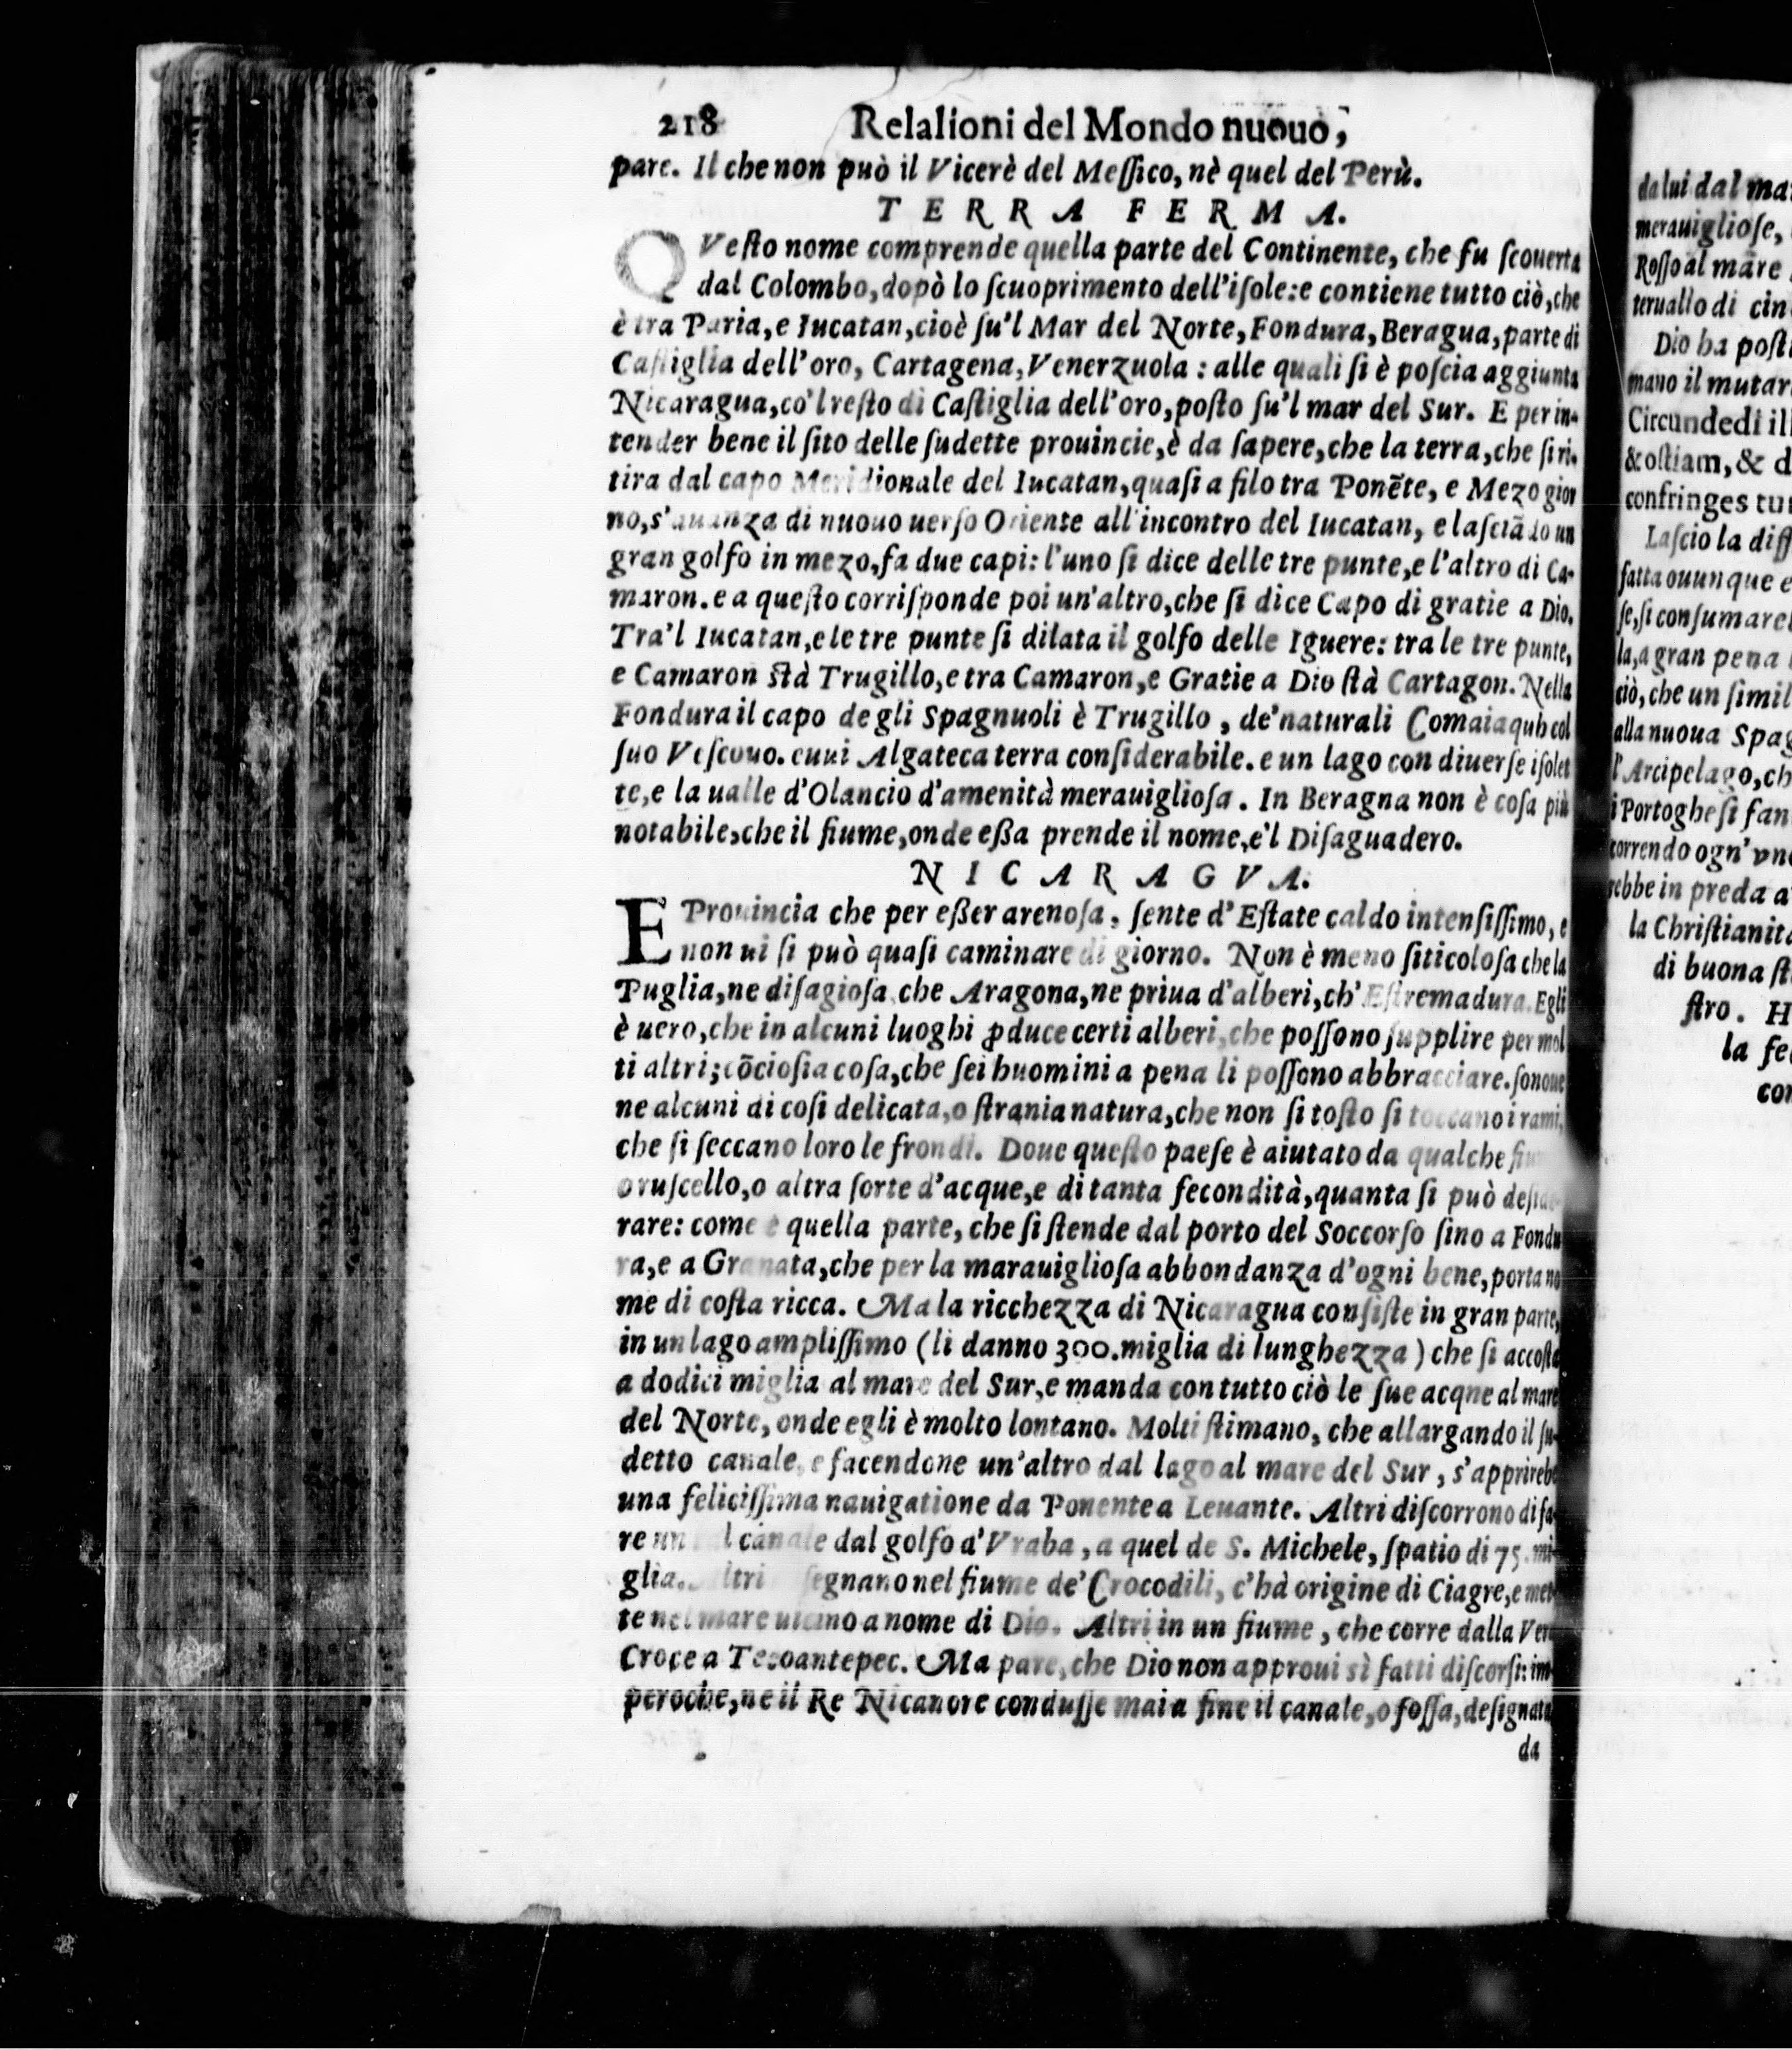 218 Relalioni del Mondo nuouo,
pare. Il che non può il Vicerè del Meſſico, nè quel del Perù.
TERRA FERMA.
QVeſto nome comprende quella parte del Continente, che fu ſcouerta
dal Colombo, dopò lo ſcuoprimento dell'iſole: e contiene tutto ciò, che
è tra Paria, e Iucatan, cioè ſu'l Mar del Norte, Fondura, Beragua, parte di
Caſtiglia dell'oro, Cartagena, Venerzuola: alle quali ſi è poſcia aggiunta
Nicaragua, co'l reſto di Caſtiglia dell'oro, poſto ſu'l mar del Sur. E per in-
tender bene il ſito delle ſudette prouincie, è da ſapere, che la terra, che ſi ri-
tira dal capo Meridionale del Iucatan, quaſi a filo tra Ponẽte, e Mezo gior
no, s'auanza di nuouo uerſo Oriente all'incontro del Iucatan, e laſciãdo un
gran golfo in mezo, fa due capi: l'uno ſi dice delle tre punte, e l'altro di Ca-
maron. e a queſto corriſponde poi un'altro, che ſi dice Capo di gratie a Dio.
Tra'l Iucatan, e le tre punte ſi dilata il golfo delle Iguere: tra le tre punte,
e Camaron ſtà Trugillo, e tra Camaron, e Gratie a Dio ſtà Cartagon. Nella
Fondura il capo de gli Spagnuoli è Trugillo, de'naturali Comaiaquh col
ſuo Veſcouo. euui Algateca terra conſiderabile. e un lago con diuerſe iſolet
te, e la ualle d'Olancio d'amenità merauiglioſa. In Beragna non è coſa più
notabile, che il fiume, onde eßa prende il nome, e'l Diſaguadero.
NICARAGVA.
E Prouincia che per eßer arenoſa, ſente d'Eſtate caldo intenſiſſimo, e
non ui ſi può quaſi caminare di giorno. Non è meno ſiticoloſa che la
Puglia, ne diſagioſa che Aragona, ne priua d'alberi, ch'Eſtremadura. Egli
è uero, che in alcuni luoghi ꝓduce certi alberi, che poſſono ſupplire per mol
ti altri; cõcioſia coſa, che ſei huomini a pena li poſſono abbracciare. ſonoue
ne alcuni di coſi delicata, o ſtrania natura, che non ſi toſto ſi toccano i rami,
che ſi ſeccano loro le frondi. Doue queſto paeſe è aiutato da qualche
o ruſcello, o altra ſorte d'acque, e di tanta fecondità, quanta ſi può deſide-
rare: come è quella parte, che ſi ſtende dal porto del Soccorſo ſino a Fondu
ra, e a Granata, che per la marauiglioſa abbondanza d'ogni bene, porta no
me di coſta ricca. Ma la ricchezza di Nicaragua conſiſte in gran parte,
in un lago ampliſſimo (li danno 300. miglia di lunghezza) che ſi accoſta
a dodici miglia al mare del Sur, e manda con tutto ciò le ſue acqne al mare
del Norte, onde egli è molto lontano. Molti ſtimano, che allargando il ſu-
detto canale, e facendone un'altro dal lago al mare del Sur, s'apprirebe
una feliciſſima nauigatione da Ponente a Leuante. Altri diſcorrono di fa-
re un canale dal golfo d'Vraba, a quel de S. Michele, ſpatio di 75. mi-
glia. ſegnano nel fiume de'Crocodili, c'hà origine di Ciagre, e met-
te nel mare uicino a nome di Dio. Altri in un fiume, che corre dalla Vera
Croce a Tecoantepec. Ma pare, che Dio non approui sì fatti diſcorſi: im-
peroche, ne il Re Nicanore conduſſe mai a fine il canale, o foſſa, deſignata
da
da lui dal
merauiglioſe,
Roſſo al mare
teruallo di cin
Dio ha poſt
mano il mutar
Circundedi ill
& oſtiam, & d
confringes tu
Laſcio la diff
fatta ouunque e
ſe, ſi conſumare
la, a gran pena
ciò, che un ſimil
alla nuoua Spag
l'Arcipelago, ch
i Portogheſi fan
correndo ogn'vn
rebbe in preda a
la Chriſtianit
di buona ſt
ſtro. H
la fe
con